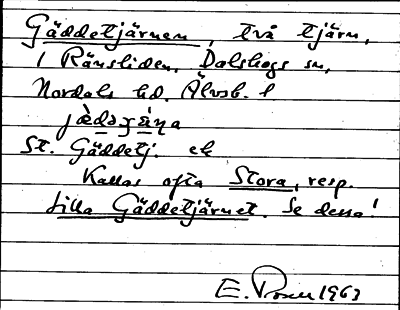 Gäddetjärnen, två tjärn,
i Ränsliden, Dalskogs sn,
Nordals hd. Älvsb. l
St. Gäddetj. ek
Kallas ofta Stora, resp.
Lilla Gäddetjärnet. Se dessa!
E. 1963